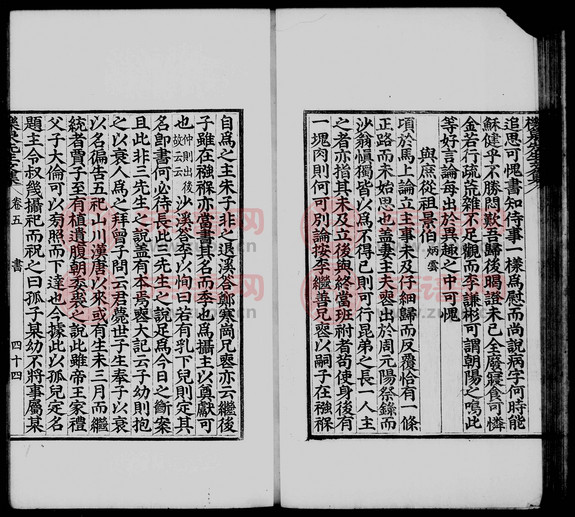 追思可愧書知侍事一樣爲慰而尚說病字何時能
蘇健乎不勝悶歎吾歸後暍證未已全廢寢食可憐
金若行疏荒雜不足觀而李謙彬可謂朝陽之鳴此
等好言論每出於異趣之中可愧
與庶從祖景伯 炳雲
項於馬上論立主事未及仔細歸而反覆恰有一條
正路而未始思也蓋妻主夫喪出於周元陽祭錄而
沙翁愼獨皆以爲不得已則可行昆弟之長一人主
之者亦指其未及立後與終當班祔者苟使身後有
一塊肉則何可別論按李繼善兄喪以嗣子在襁褓
自爲之主朱子非之退溪答鄭寒岡兄喪亦云繼後
子雖在襁褓亦當書其名而季也爲攝主以奠獻可
也 仲則出後故云云 沙溪答李以恂曰若有乳下兒則定其
名卽書何必待長此三先生之說足爲今日之斷案
且此非三先生之說蓋有本焉喪大記云子幼則抱
之以衰人爲之拜曾子問云君薨世子生奉子以衰
以名徧告五祀山川漢唐以來或有生未二月而繼
統者賈子至於有植遺腹朝委裘之說此雖帝王家禮
父子大倫可以旁照而下達也今據此以孤兒定名
題主令叔幾攝祀而祝之曰孤子某幼不將事屬某
卷五 書 四十四